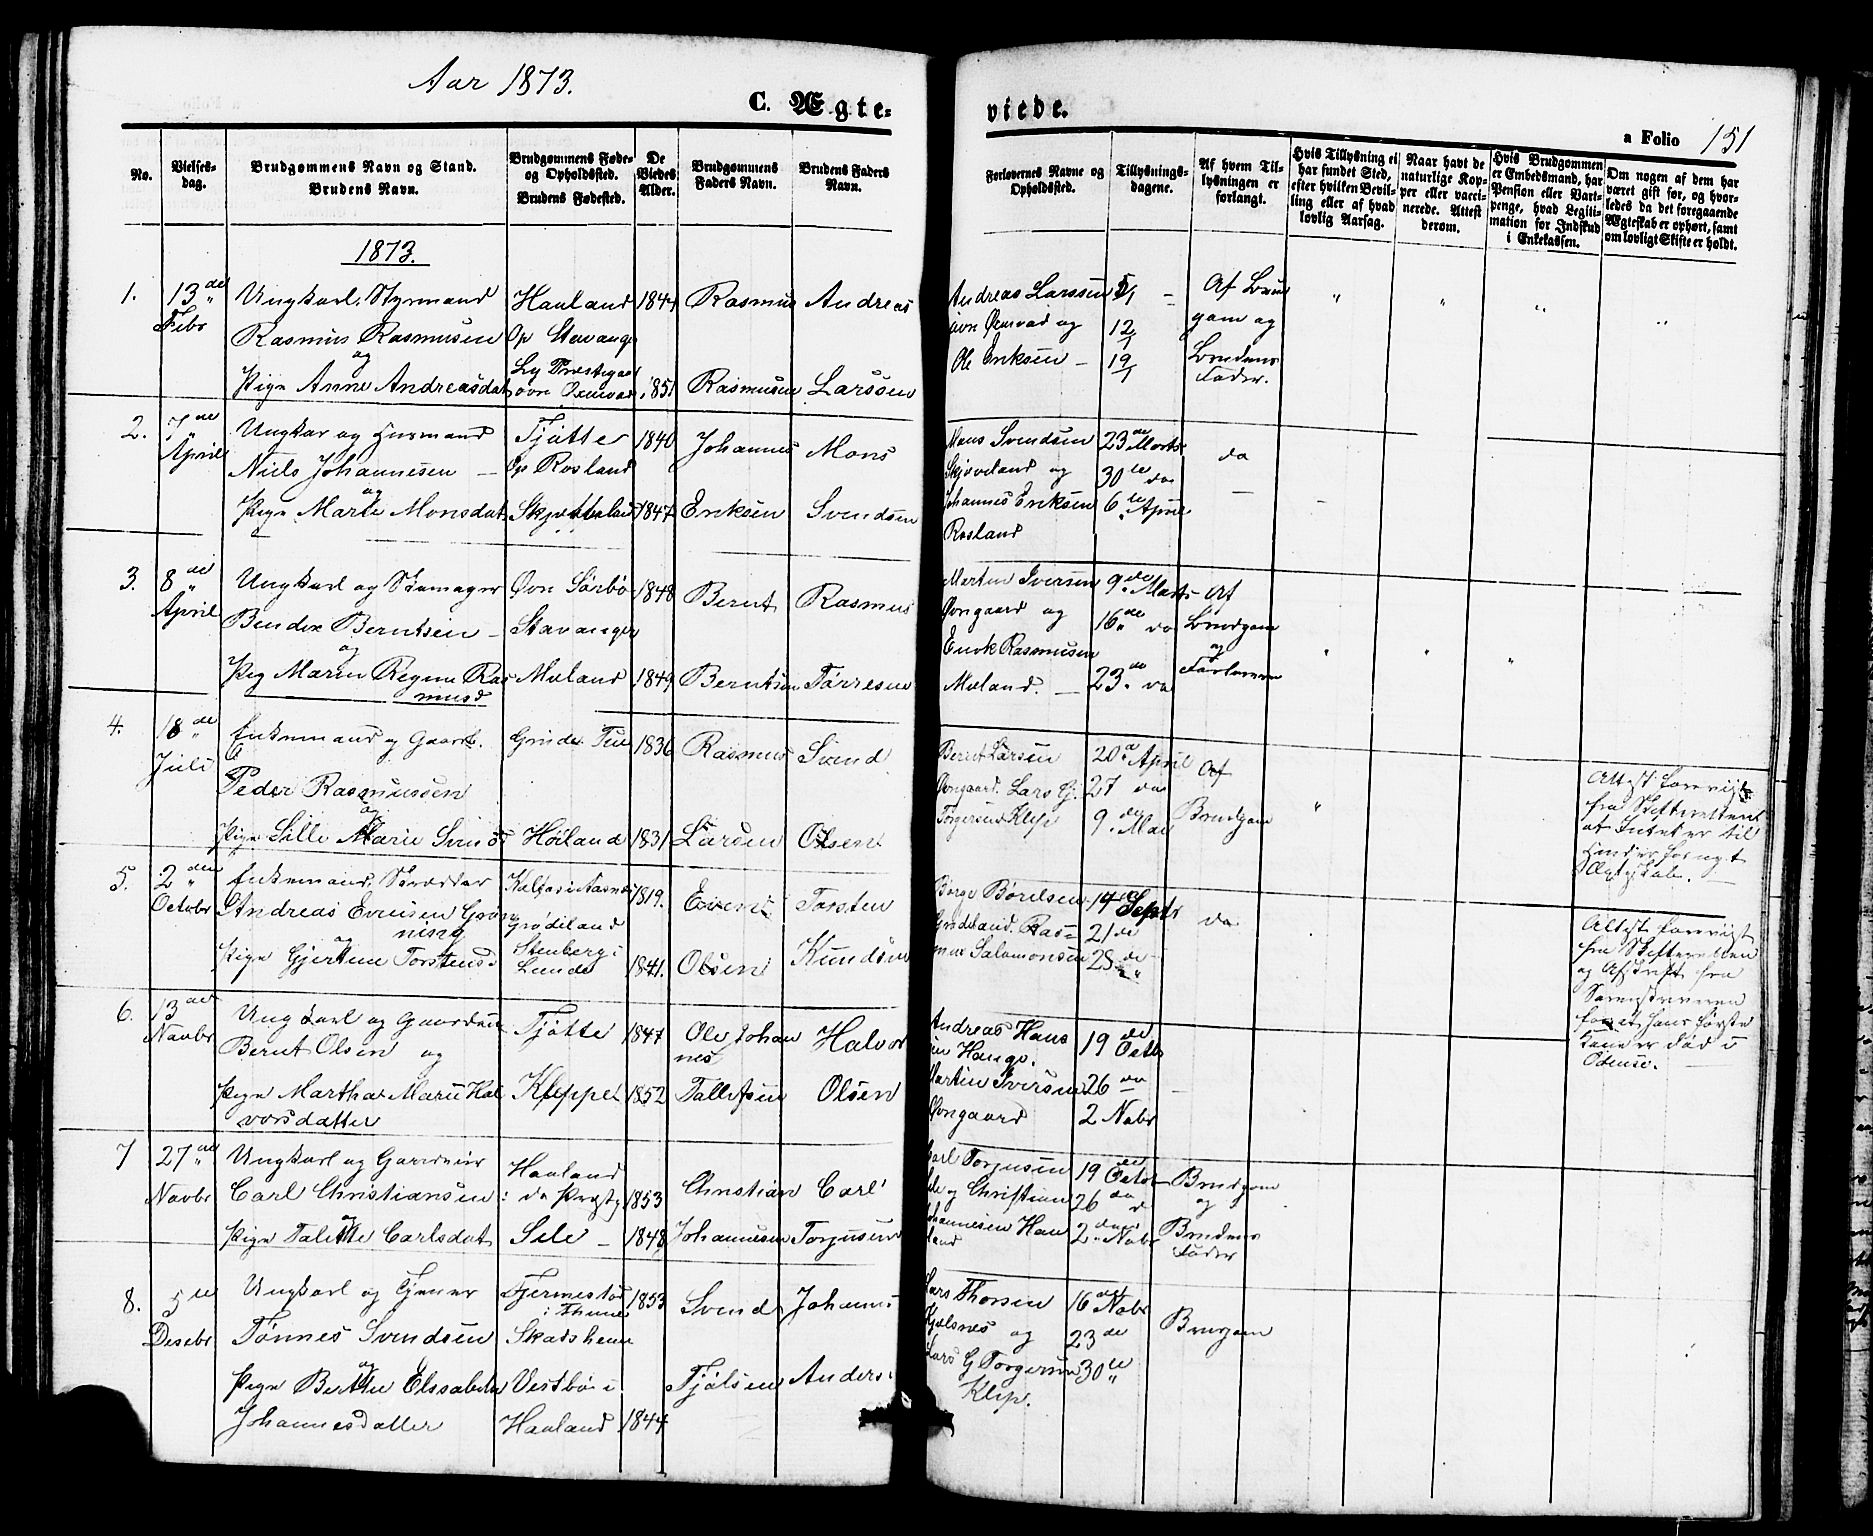 Aar 1873.
C. Ægte-
viede.
a Folio 151
No.
Vielses-
dag.
Brudgommens Navn og Stand.
Brudens Navn.
Brudgommens Føde-
og Opholdssted.
Brudens Fødested.
De
Viedes
Alder.
Brudgommens
Faders Navn.
Brudens Faders
Navn.
Forlovernes Navne og
Opholdssted.
Tillysnings-
dagene.
Af hvem Til-
lysningen er
forlangt.
Hvis Tillysning ei
har fundet Sted,
efter hvilken Bevil-
ling eller af hvad
lovlig Aarsag.
Naar havt de
naturlige Kop-
per eller vacci-
nerede. Attest
derom.
Hvis Brudgommen
er Embedsmand, har
Pension eller Vart-
penge, hvad Legiti-
mation for Indskud
i Enkekassen.
Om nogen af dem har
været gift før, og hvor-
ledes da det foregaaende
Ægteskab er ophørt, samt
om lovligt Skifte er holdt.
1873.
1.
13de
Febr
Ungkarl. Styrmand
Rasmus Rasmusen
og
Pige Anne Andreasdat
Haaland
Op Stavanger
Ly Præstegae
øvre
1844
1851
Rasmus
Rasmusen
Andreas
Larssen
Andreas Larssen
øvre og
Ole Eriksen –
5/1
12/1
19/1
Af Brud
gom og
Brudens
Fader.
2.
7de
April
Ungkar og Husmand
Niels Johannesen –
og
Pige Marte Monsdat
Tjøtte
Op Rosland
1840
1847
Johannes
Eriksen
Mons
Svendsen
Mons Svendsen
og
Johannes Eriksen
Rosland
23de Marts
30te da
6te April
da
3.
8de
April
Ungkarl og Skomager
Berntsen –
og
Pig Maren Regine Ras
musd
Øvre Sørbø
Stavanger
Mæland
1848
1849
Bernt
Berntsen
Rasmus
Tørresen
Morten Iversen
Øvngaard og
Enok Rasmusen
Mæland. –
9de Marts
16de da
23de da
Af
Brudgom
og
Forlovern
4.
18de
Juli
Enkemand og Gaarb.
Peder Rasmussen
og
Pige Sille Marie Svend
Grude Tue
Høiland
1836
1831
Rasmus
Larsen
Svend
Olsen
Bernt Larsen
Øvngaard. Lars G.
Torgersen Klep
20de April
27 da
9de Mai
Af
Brudgom
Attest forevigt
fra Skifteretten
at Intet er til
Hinder for nyt
Ægteskab.
5.
2den
Octobr
Enkemand,
Andreas Evensen Grøn
ning
og
Pige Gjertine Torstensd
Grødeland
Stenberg i
Lunde
1819.
1841.
Even
Olsen
Torsten
Knudsen
Børge Børelsen
Grødeland. Ras-
mus Salomonsen
14 Septr
21de
28de
da
Attest forevigt
fra Skifteretten
og Afskrift fra
hans første
Kone er død i
6.
13de
Novbr
Ungkarl og
Bernt Olsen og
Pige Martha Marie Hal
vorsdatter
Tjøtte
Kleppe
1847
1852
Ole Johan
nes
Tallefsen
Halvor
Olsen
Andreas Hans
sen Hauge.
Martin Iversen
Øvngaard
19de Octbr
26 da
2 Nobr
7
27de
Novbr
Ungkarl og
Carl Christiansen
og
Pige Talette Carlsdat
Haaland
Sele –
1853
1848
Christian
Johannesen
Carl
Torjusen
Carl Torjusen
Sele og Christian
Johannesen Haa
land
19de Octbr
26 da
2den Nobr
Brudgom
og
Brudens
Fader
8.
5te
Desebr
Ungkarl og Tjener
Tønnes Svendsen
og
Pige Berthe Elssabeth
Johannesdatter
i Thime
Vestbø i
Haaland
1853
1844
Svend
Johannes
Anders
Lars Thorsen
og
Lars G Torgersen
Klep.
16de Nobr
23de
30te
Brugom